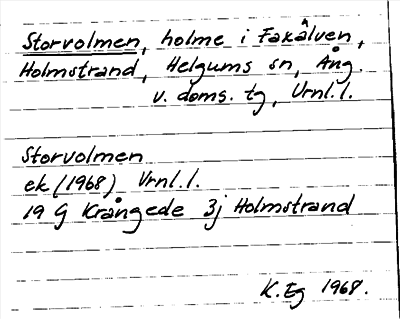 Storvolmen, holme i Faxälven,
Holmstrand, Helgums sn, Ång.
v. doms. tg, Vrnl.l.
Storvolmen
ek (1968) Vrnl.l.
19 G Krångede 3j Holmstrand
K.Eg 1968.